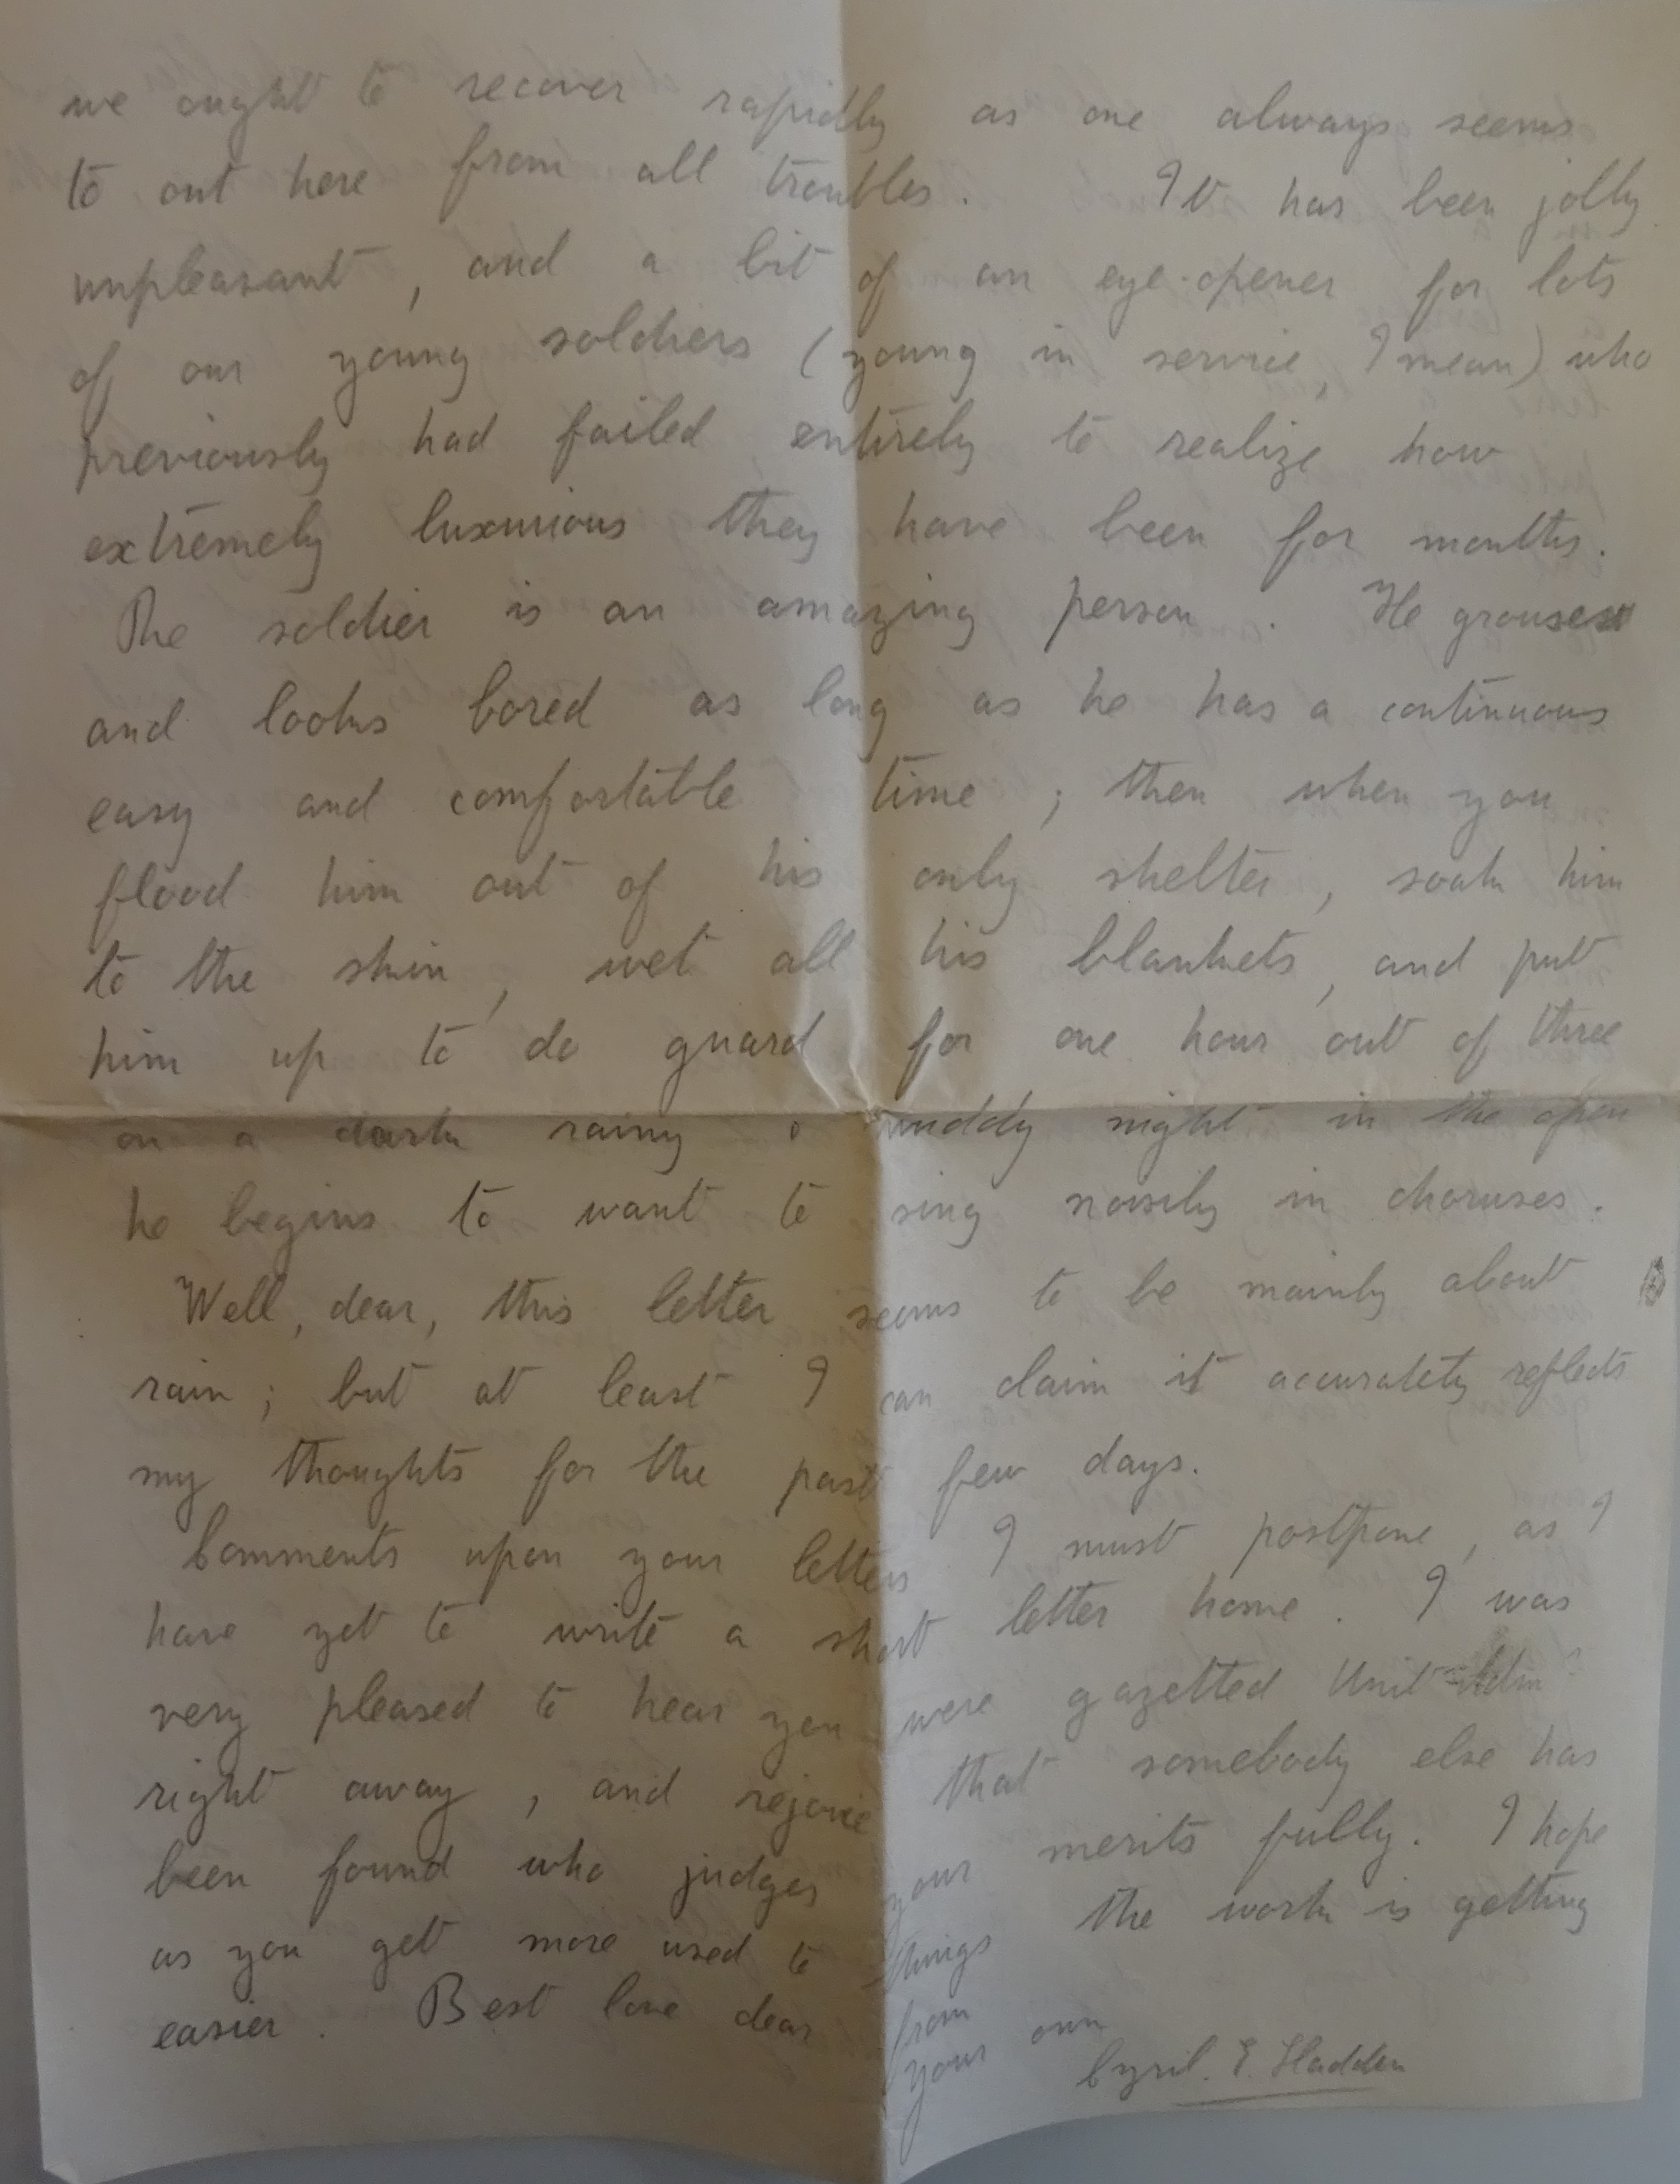 we ought to recover rapidly as one always seems
to out here from all troubles. It has been jolly
unpleasant, and a bit of an eye-opener for lots
of our young soldiers (young in service, I mean) who
previously had failed entirely to realize how
extremely luxurious they have been for months.
The soldier is an amazing person. He grouses
and looks bored as long as he has a continuous
easy and comfortable time; then when you
flood him out of his only shelter, soak him
to the skin, wet all his blankets, and put
him up to do guard for one hour out of three
on a dark rainy & muddy night in the open
he begins to want to sing noisily in choruses.
Well, dear, this letter seems to be mainly about
rain; but at least I can claim it accurately reflects
my thoughts for the past few days.
Comments upon your letters I must postpone, as I
have yet to write a short letter home. I was
very pleased to hear you were gazetted Unit-Adm
right away, and rejoice that somebody else has
been found who judges your merits fully. I hope
as you get more used to things the work is getting
easier. Best love dear from
your own
Cyril. E. Hadden